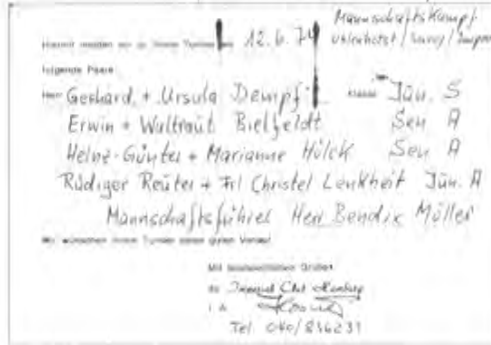 Mannschaftskampf
Hiermit melden wir zu Ihrem Turnier am 12.6.74 Uhlenhorst / Savoy /
folgende Paare
Herr Gerhard + Ursula Dempf Klasse Jün. S
Erwin + Waltraut Bielfeldt Sen A
Heinz-Günter + Marianne Hölck Sen A
Rüdiger Reuter + Frl Christel Lenkheit Jün. A
Mannschaftsführer Herr Bendix Möller
Wir wünschen Ihrem Turnier einen guten Verlauf
Mit freundlichen Grüßen
Imperial Club Hamburg
i. A.
Tel 040/